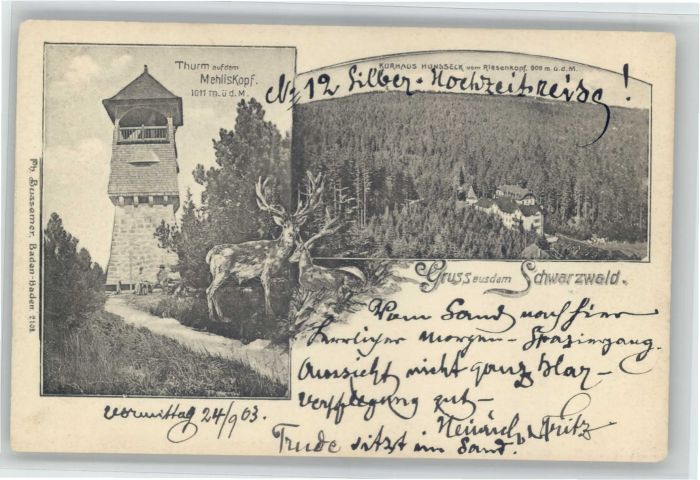 Thurm auf dem
Mehliskopf.
1011 m. ü. d. M.
KURHAUS HUNDSECK vom Riesenkopf. 900 m. ü. d. M.
No 12 Silber-Hochzeitsreise!
Gruss aus dem Schwarzwald.
Vom Sand nach hier
Herrlicher Morgen-Spaziergang.
Aussicht nicht ganz klar -
Verpflegung gut -
Heinrich & Fritz
Vormittag 24/9 03.
Trude sitzt im Sand.
Ph. Bussemer, Baden-Baden 2102